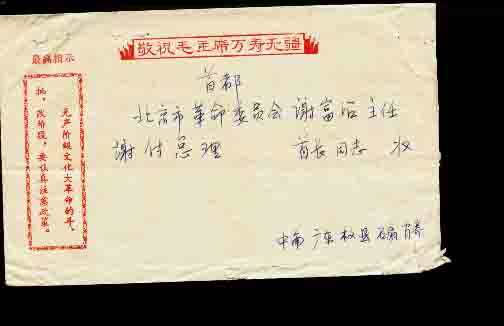 敬祝毛主席万寿无疆
最高指示
无产阶级文化大革命的斗、
批、改阶段，要认真注意政策。
首都
北京市革命委员会谢富治主任
谢付总理 首长同志 收
中南 广东 县